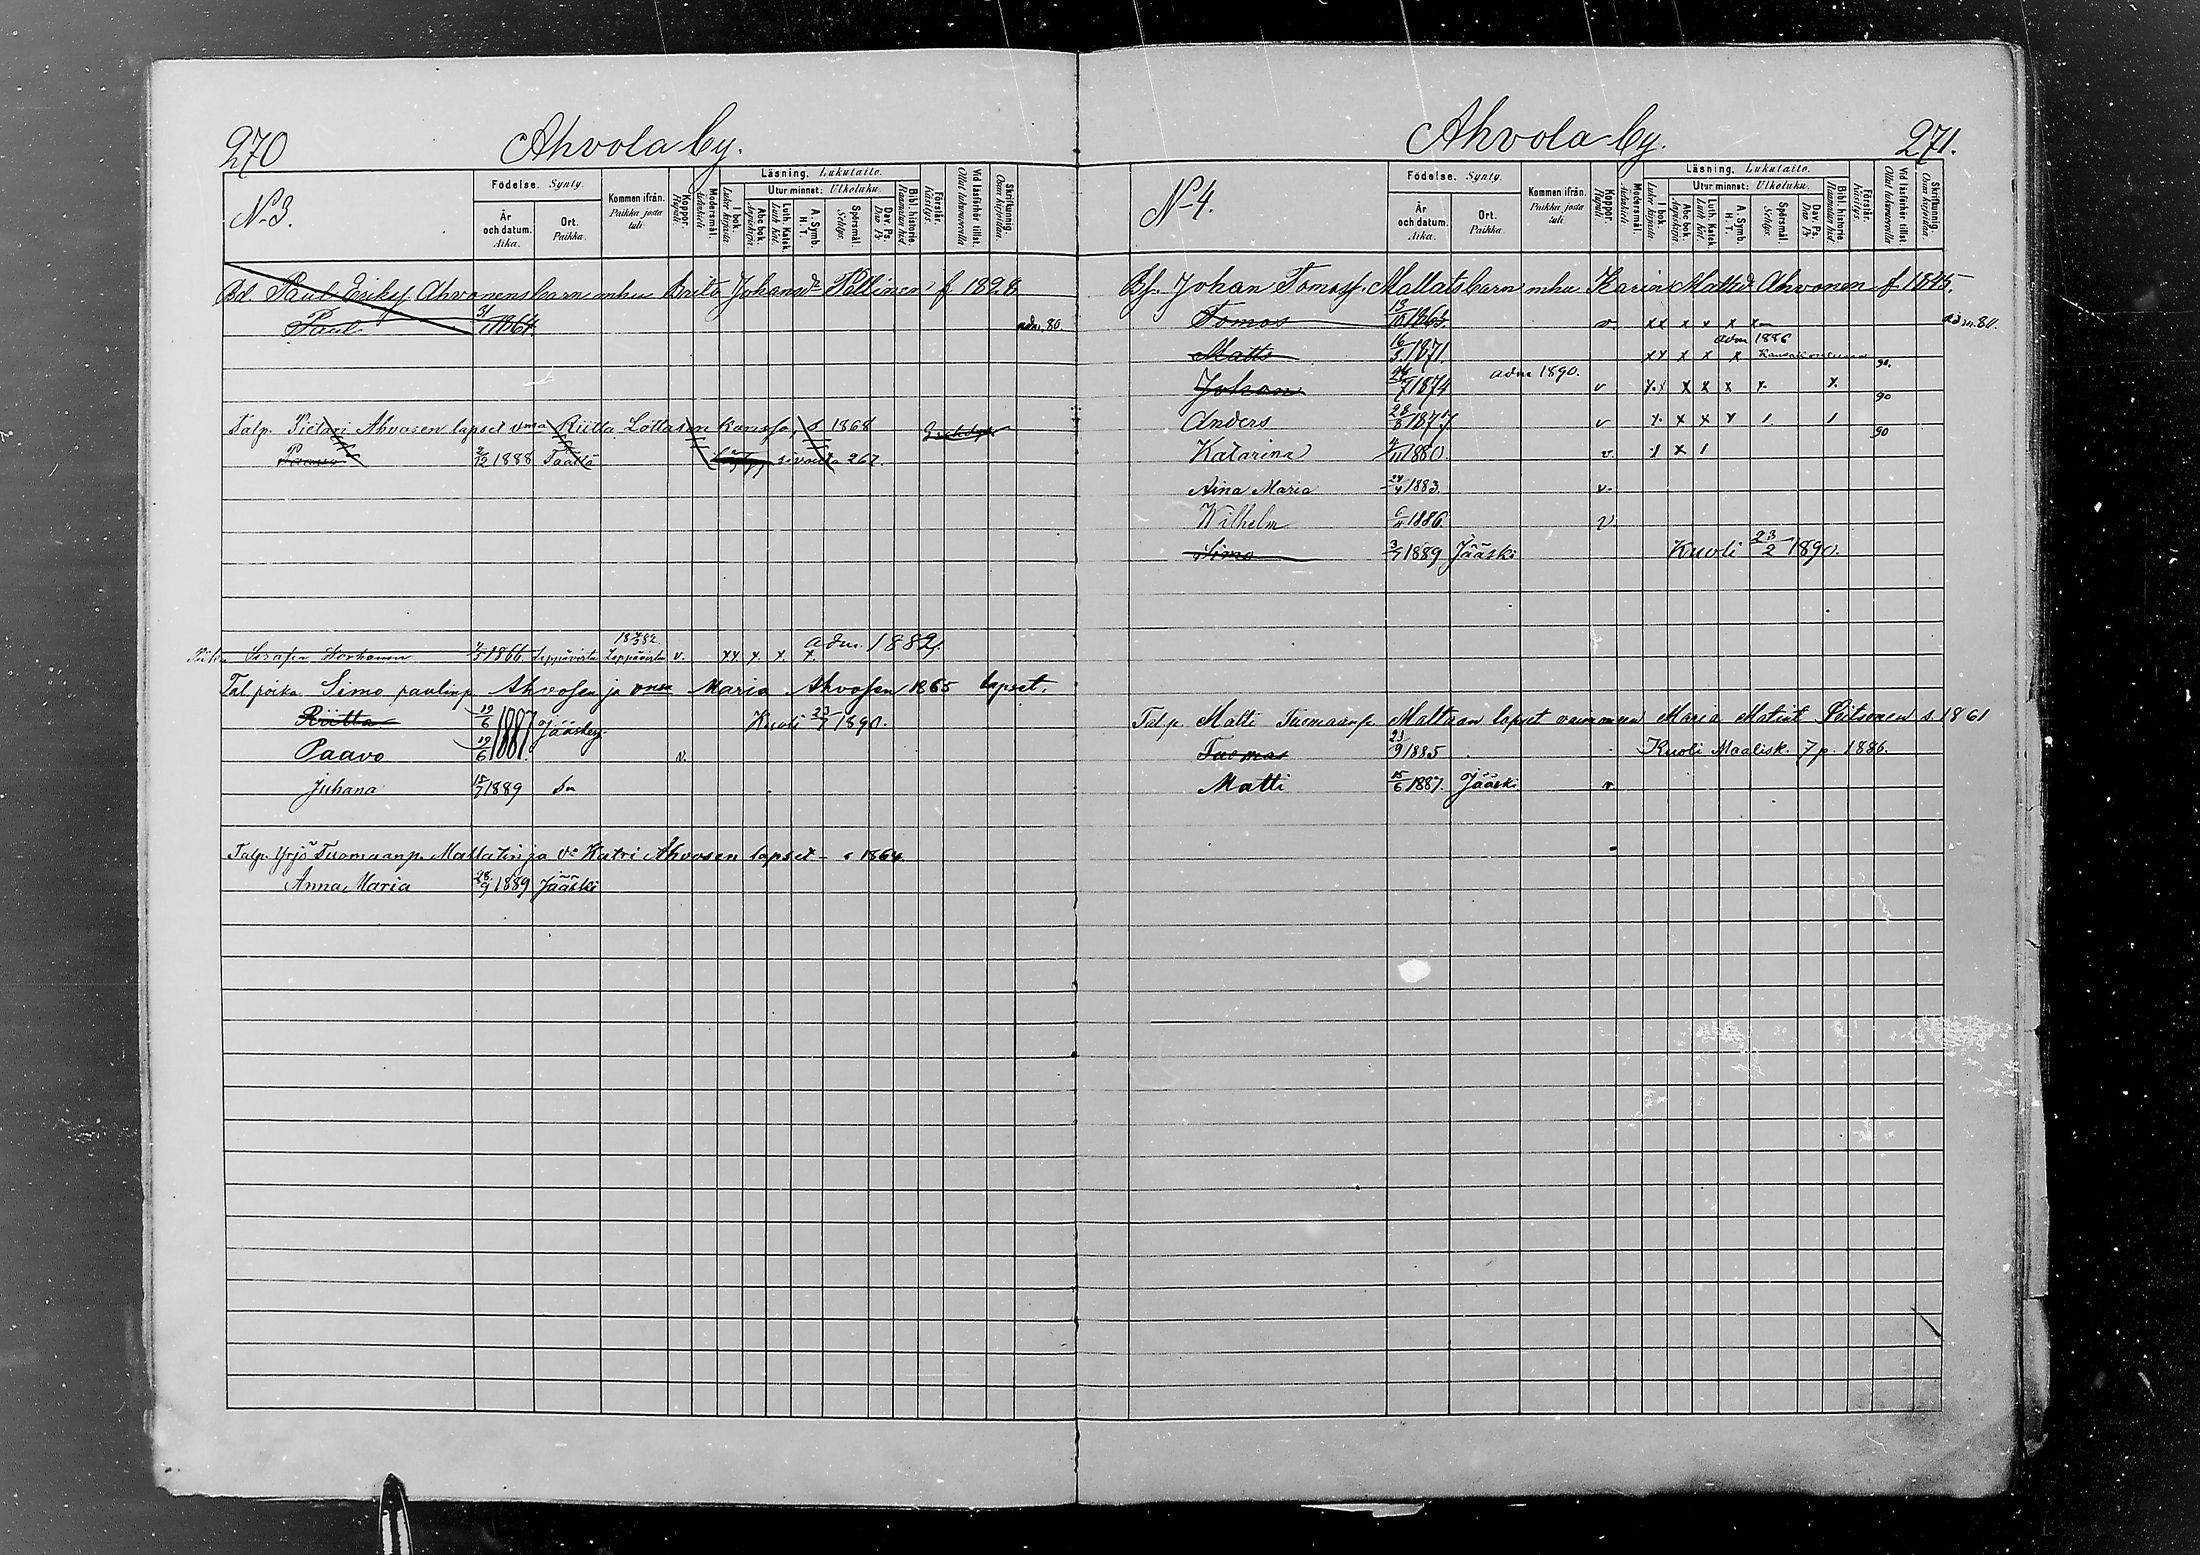 270
Ahvola by.
N. 3.
Födelse. Synty.
År och datum. Aika.
Ort. Paikka.
Kommen ifrån. Paikka josta tuli.
Koppor. Rupuli.
Modersmål. Äidinkieli
Läsning. Lukutaito.
I bok. Lukee kirjasta
Utur minnet: Ulkoluku.
Abc bok. Aapiskirja
Luth. Katek. Luth. Kat.
A. Symb. H. T.
Spörsmål. Selitys.
Dav. Ps. Da. Ps
Bibl. historie Raamatun hist.
Förstår. Käsitys.
Vid läsförhör tillst. Ollut lukuvuorolla
Skrifkunnig. Osaa kirjoittaa.
Bd. Paul Eriksf. Ahvonens barn mhu Brita Johansdr Pellinen f 1828
Paul 1864 adm. 80
Talp. Pietari Ahvosen lapset vmon Riitta Lottasen kanssa, s. 1868
Paavo 2/12 1888 Täällä sivulta 267.
18 82.
Piika 1866. Leppävirta Leppävirta v. xx x. x. x. adm. 1882.
Tal. poika Simo paulinp. Ahvosen ja vmon Maria Ahvosen 1865 lapset.
Riitta 19/6 1887 Jääskey Kuoli 23/7 1890.
Paavo 19/6 v.
Juhana 15/7 1889 Su
Talp. Yrjö Tuomaanp. Mallatin ja Vo Katri Ahvosen lapset - s 1864
Anna Maria 28/9 1889 Jääski
Ahvola by.
271.
N. 4.
Födelse. Synty.
År och datum. Aika.
Ort. Paikka.
Kommen ifrån. Paikka josta tuli.
Koppor. Rupuli.
Modersmål. Äidinkieli
Läsning. Lukutaito.
I bok. Lukee kirjasta
Utur minnet: Ulkoluku.
Abc bok. Aapiskirja
Luth. Katek. Luth. Kat.
A. Symb. H. T.
Spörsmål. Selitys.
Dav. Ps. Da. Ps
Bibl. historie Raamatun hist.
Förstår. Käsitys.
Vid läsförhör tillst. Ollut lukuvuorolla
Skrifkunnig. Osaa kirjoittaa.
Bf. Johan Tomasf. Mallats barn mhu Karin Mattsd. Ahvonen f 1845.
Tomas 13/10 1863. v. xx x x x adm. 80.
adm 1886
Matts 16/3 1871. xx x x x 90.
Johan 1874 adm 1890. v x.x x x x x. x. 90
Anders 1877 v x. x x x 1. 1 90
Katarina 4/11 1880. v. 1 x 1
Aina Maria 24/4 1883. v.
Wilhelm 1886 v
Simo 3/7 1889 Jääski Kuoli 23/2 1890.
Tal.p. Matti Tuomaanp. Mallaan lapset vaimonsa Maria Matint. s. 1861
Tuomas 23/9 1885 Kuoli Maalisk. 7 p. 1886.
Matti 15/6 1887. Jääski v